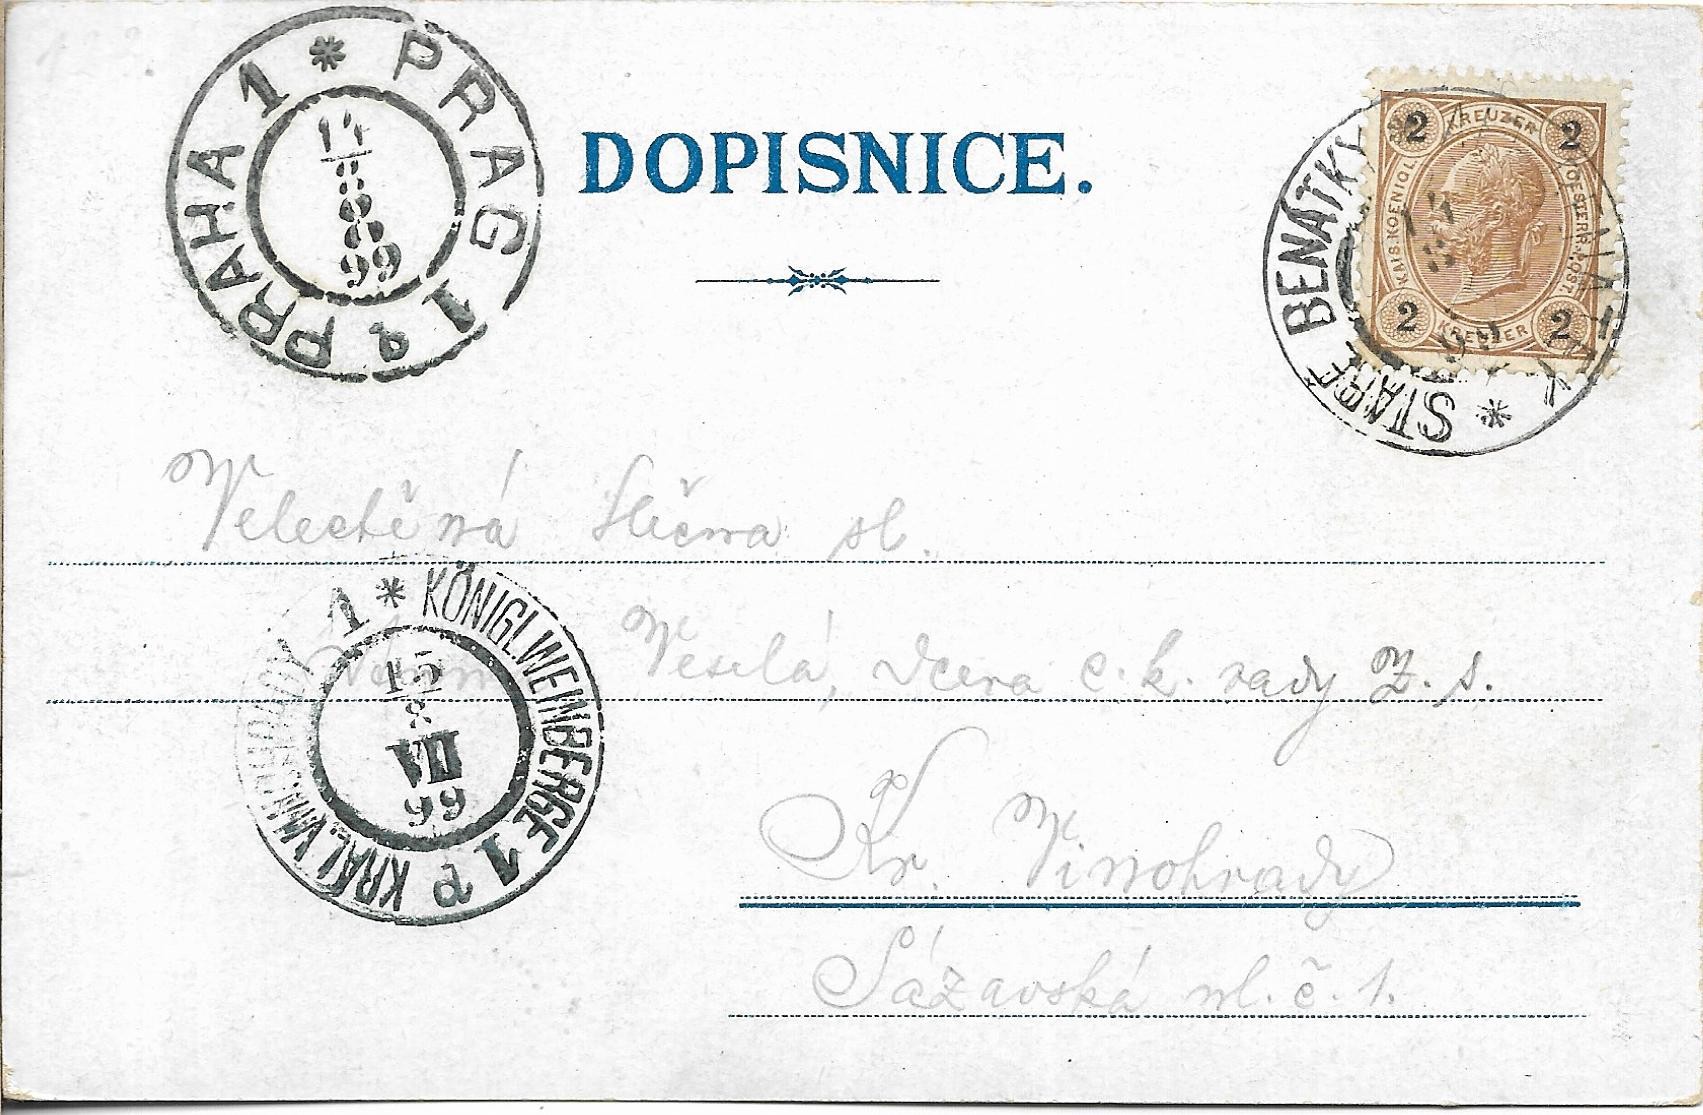 PRAG 1 & PRAHA 1
14
8
8
99
DOPISNICE.
KREUZER
2 2
KAIS. KOENIGL. OESTERR. POST.
2 2
KREUZER
STARÉ BENÁTKY
14
8
Velectěná Slečna sl.
Veselá, dcera c. k. rady Z. s.
KÖNIGL. WEINBERGE 1 KRÁL. VINOHRADY 1
15
8
VII
99
Kr. Vinohrady
Sázavská ul. č. 1.